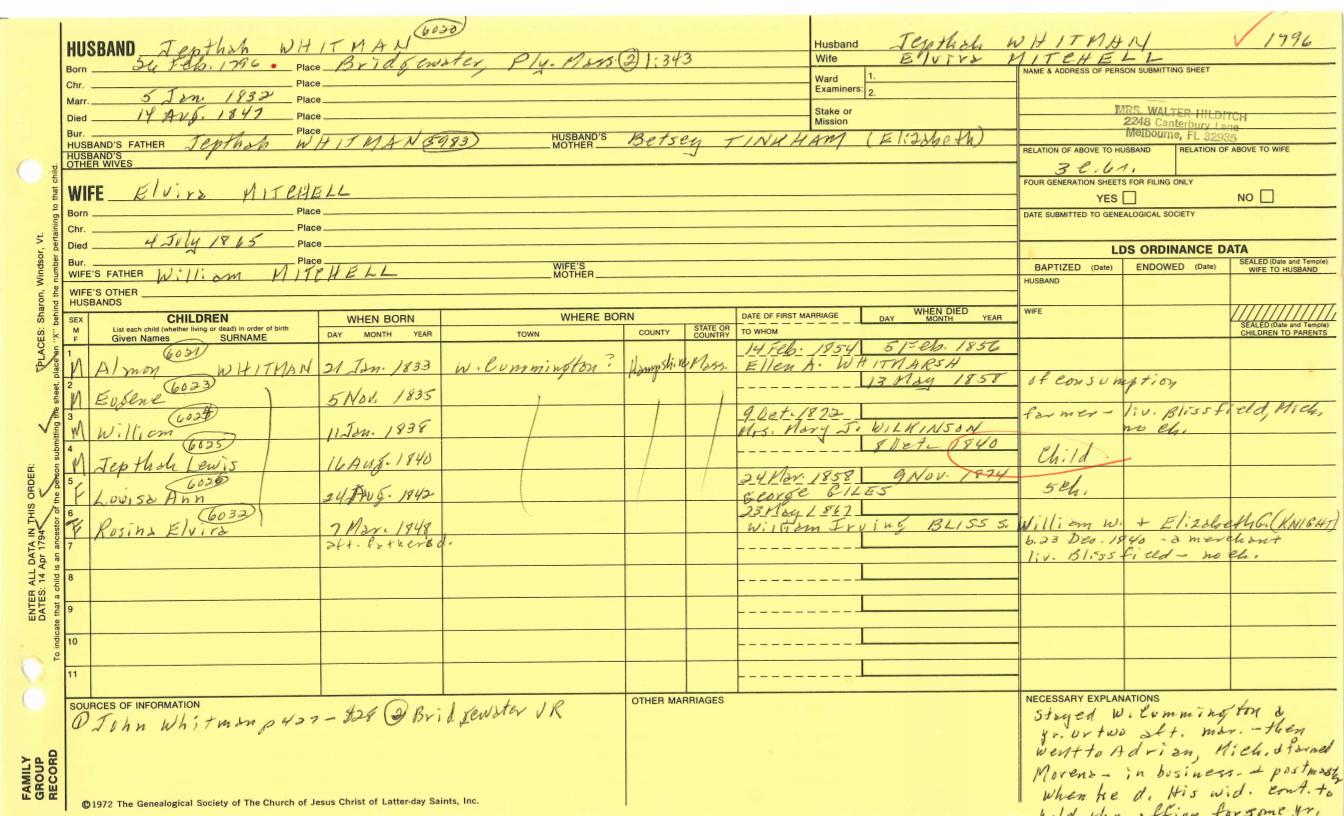 HUSBAND Jepthah WHITMAN 6020
Born 26 Feb. 1796 Place Bridgewater, Ply. Mass ② 1:343
Chr. Place
Marr. 5 Jan. 1832 Place
Died 14 Aug. 1847 Place
Bur. Place
HUSBAND'S FATHER Jepthah WHITMAN 5983 HUSBAND'S MOTHER Betsey TINKHAM (Elizabeth)
HUSBAND'S OTHER WIVES
Husband Jepthah WHITMAN 1796
Wife Elvira MITCHELL
Ward Examiners: 1.
2.
Stake or Mission
NAME & ADDRESS OF PERSON SUBMITTING SHEET
MRS. WALTER HILDITCH
2248 Canterbury Lane
Melbourne, FL 32935
RELATION OF ABOVE TO HUSBAND RELATION OF ABOVE TO WIFE
FOUR GENERATION SHEETS FOR FILING ONLY
YES NO
DATE SUBMITTED TO GENEALOGICAL SOCIETY
WIFE Elvira MITCHELL
Born Place
Chr. Place
Died 4 July 1865 Place
Bur. Place
WIFE'S FATHER William MITCHELL WIFE'S MOTHER
WIFE'S OTHER HUSBANDS
LDS ORDINANCE DATA
BAPTIZED (Date) ENDOWED (Date) SEALED (Date and Temple) WIFE TO HUSBAND
HUSBAND
WIFE
SEALED (Date and Temple) CHILDREN TO PARENTS
SEX M F CHILDREN List each child (whether living or dead) in order of birth Given Names SURNAME WHEN BORN DAY MONTH YEAR WHERE BORN TOWN COUNTY STATE OR COUNTRY DATE OF FIRST MARRIAGE TO WHOM WHEN DIED DAY MONTH YEAR
6021 14 Feb. 1854 5 Feb. 1856
1 M Almon WHITMAN 21 Jan. 1833 W. Cummington? Hampshire Mass. Ellen A. WHITMARSH
2 M Eugene 6023 5 Nov. 1835 13 May 1858 of consumption
3 M William 6024 11 Jan. 1838 9 Oct. 1872 Mrs. Mary J. WILKINSON farmer - liv. Blissfield, Mich. no ch.
4 M Jepthah Lewis 6025 16 Aug. 1840 8 Oct. 1840 Child
5 F Louisa Ann 6026 24 Aug. 1842 24 Mar. 1858 9 Nov. 1874 George GILES 5 ch.
6 F Rosina Elvira 6032 7 Mar. 1848 23 May 1867 William Irving BLISS s. William W. + Elizabeth G. (KNIGHT)
aft. father d. b. 23 Dec. 1840 - a merchant
liv. Blissfield - no ch.
7
8
9
10
11
SOURCES OF INFORMATION
① John Whitman p 427-428 ② Bridgewater VR
OTHER MARRIAGES
NECESSARY EXPLANATIONS
Stayed W. Cummington a
yr. or two aft. mar. - then
went to Adrian, Mich. & farmed
in business & postmaster
when he d. His wid. cont. to
hold the office for some yr.
©1972 The Genealogical Society of The Church of Jesus Christ of Latter-day Saints, Inc.
FAMILY GROUP RECORD
ENTER ALL DATA IN THIS ORDER:
DATES: 14 Apr 1794 PLACES: Sharon, Windsor, Vt.
To indicate that a child is an ancestor of the person submitting the sheet, place an "X" behind the number pertaining to that child.